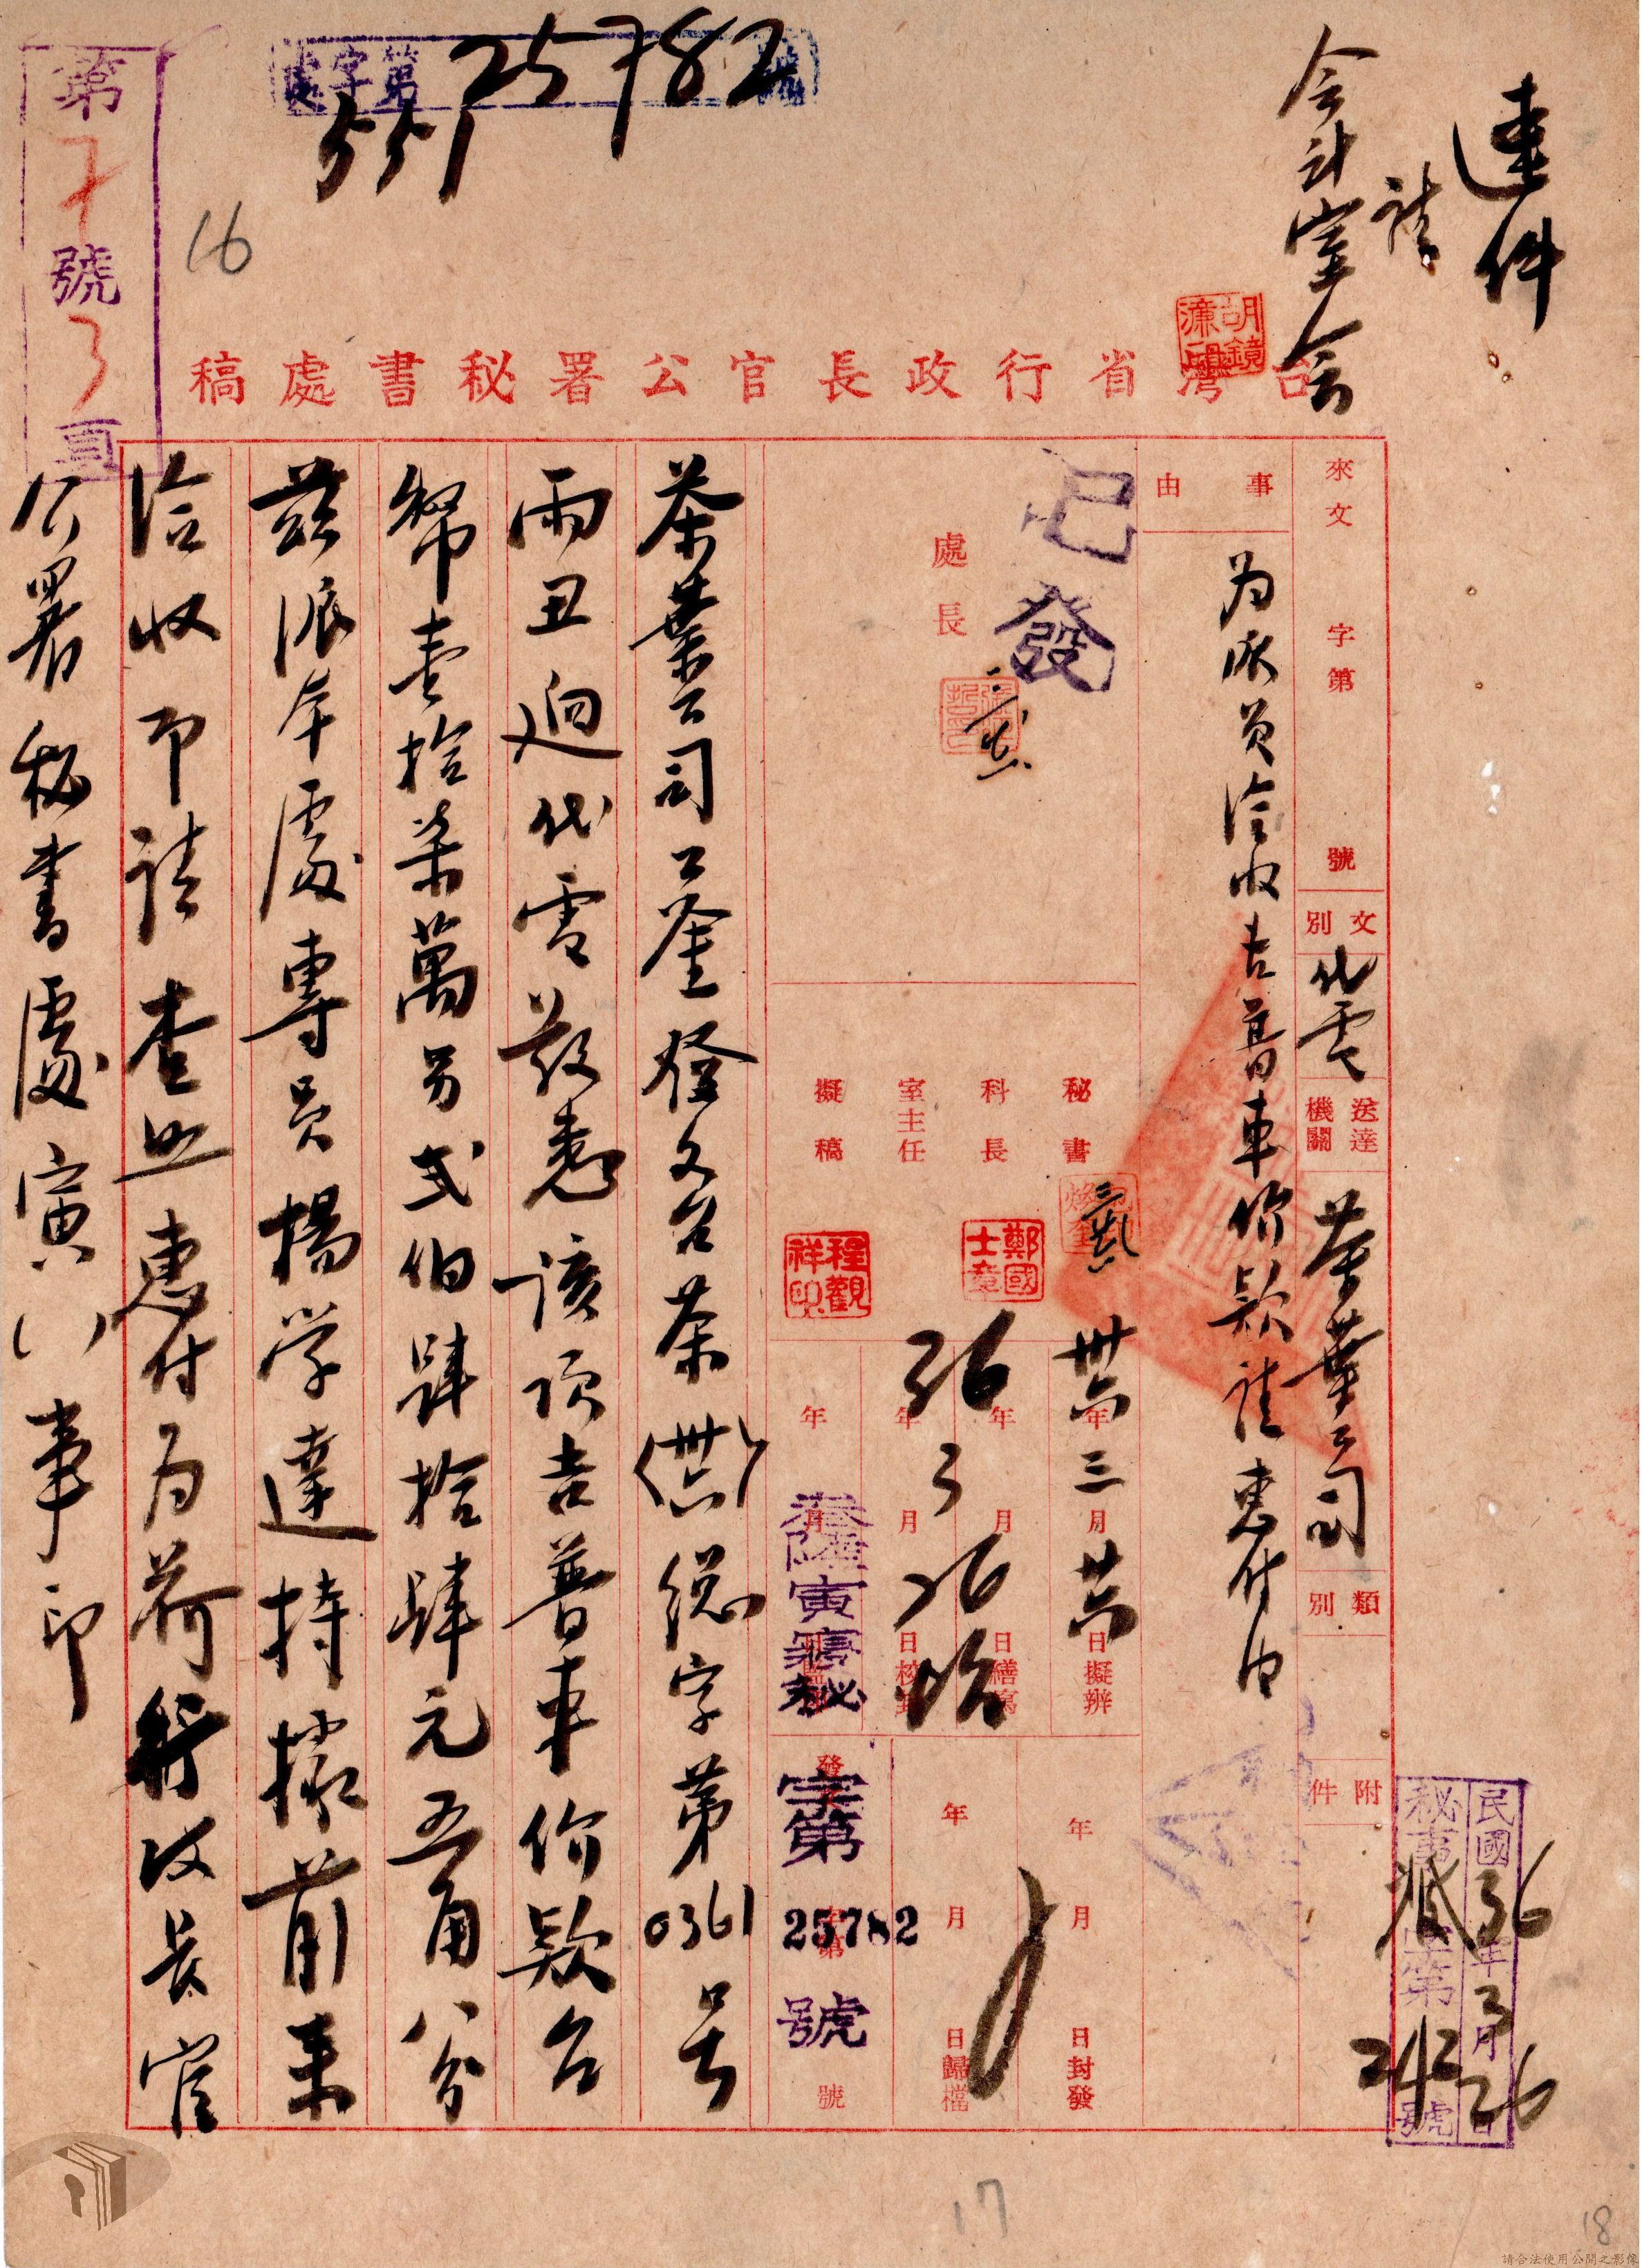 速件
請
会計室会
胡鏡濂印
處字第25782號
551
第子號3頁
16
台灣省行政長官公署秘書處稿
來文 字第 號
文別 代電
送達機關 茶葉公司
類別
附件
事由 为派員洽收吉普車價欵請惠付由
已發
處長
秘書
科長 鄭國士章
室主任
擬稿 程觀祥印
卅六年三月廿六日擬辦
年月日繕寫
36年3月26日校對
年 月 日封發
年 月 日歸檔
發文
寅 秘
字第25782號
民國36年3月26日
秘事 字第242號
茶葉公司公鑒發文台茶(卅六)總字第0361号
兩丑迴代電敬悉該項吉普車价欵台
幣壹拾柒萬另弍佰肆拾肆元五角八分
茲派本處專員楊学達持據前来
洽收即請查照惠付为荷行政長官
公署秘書處寅()事印
17
18
請合法使用公開之影像